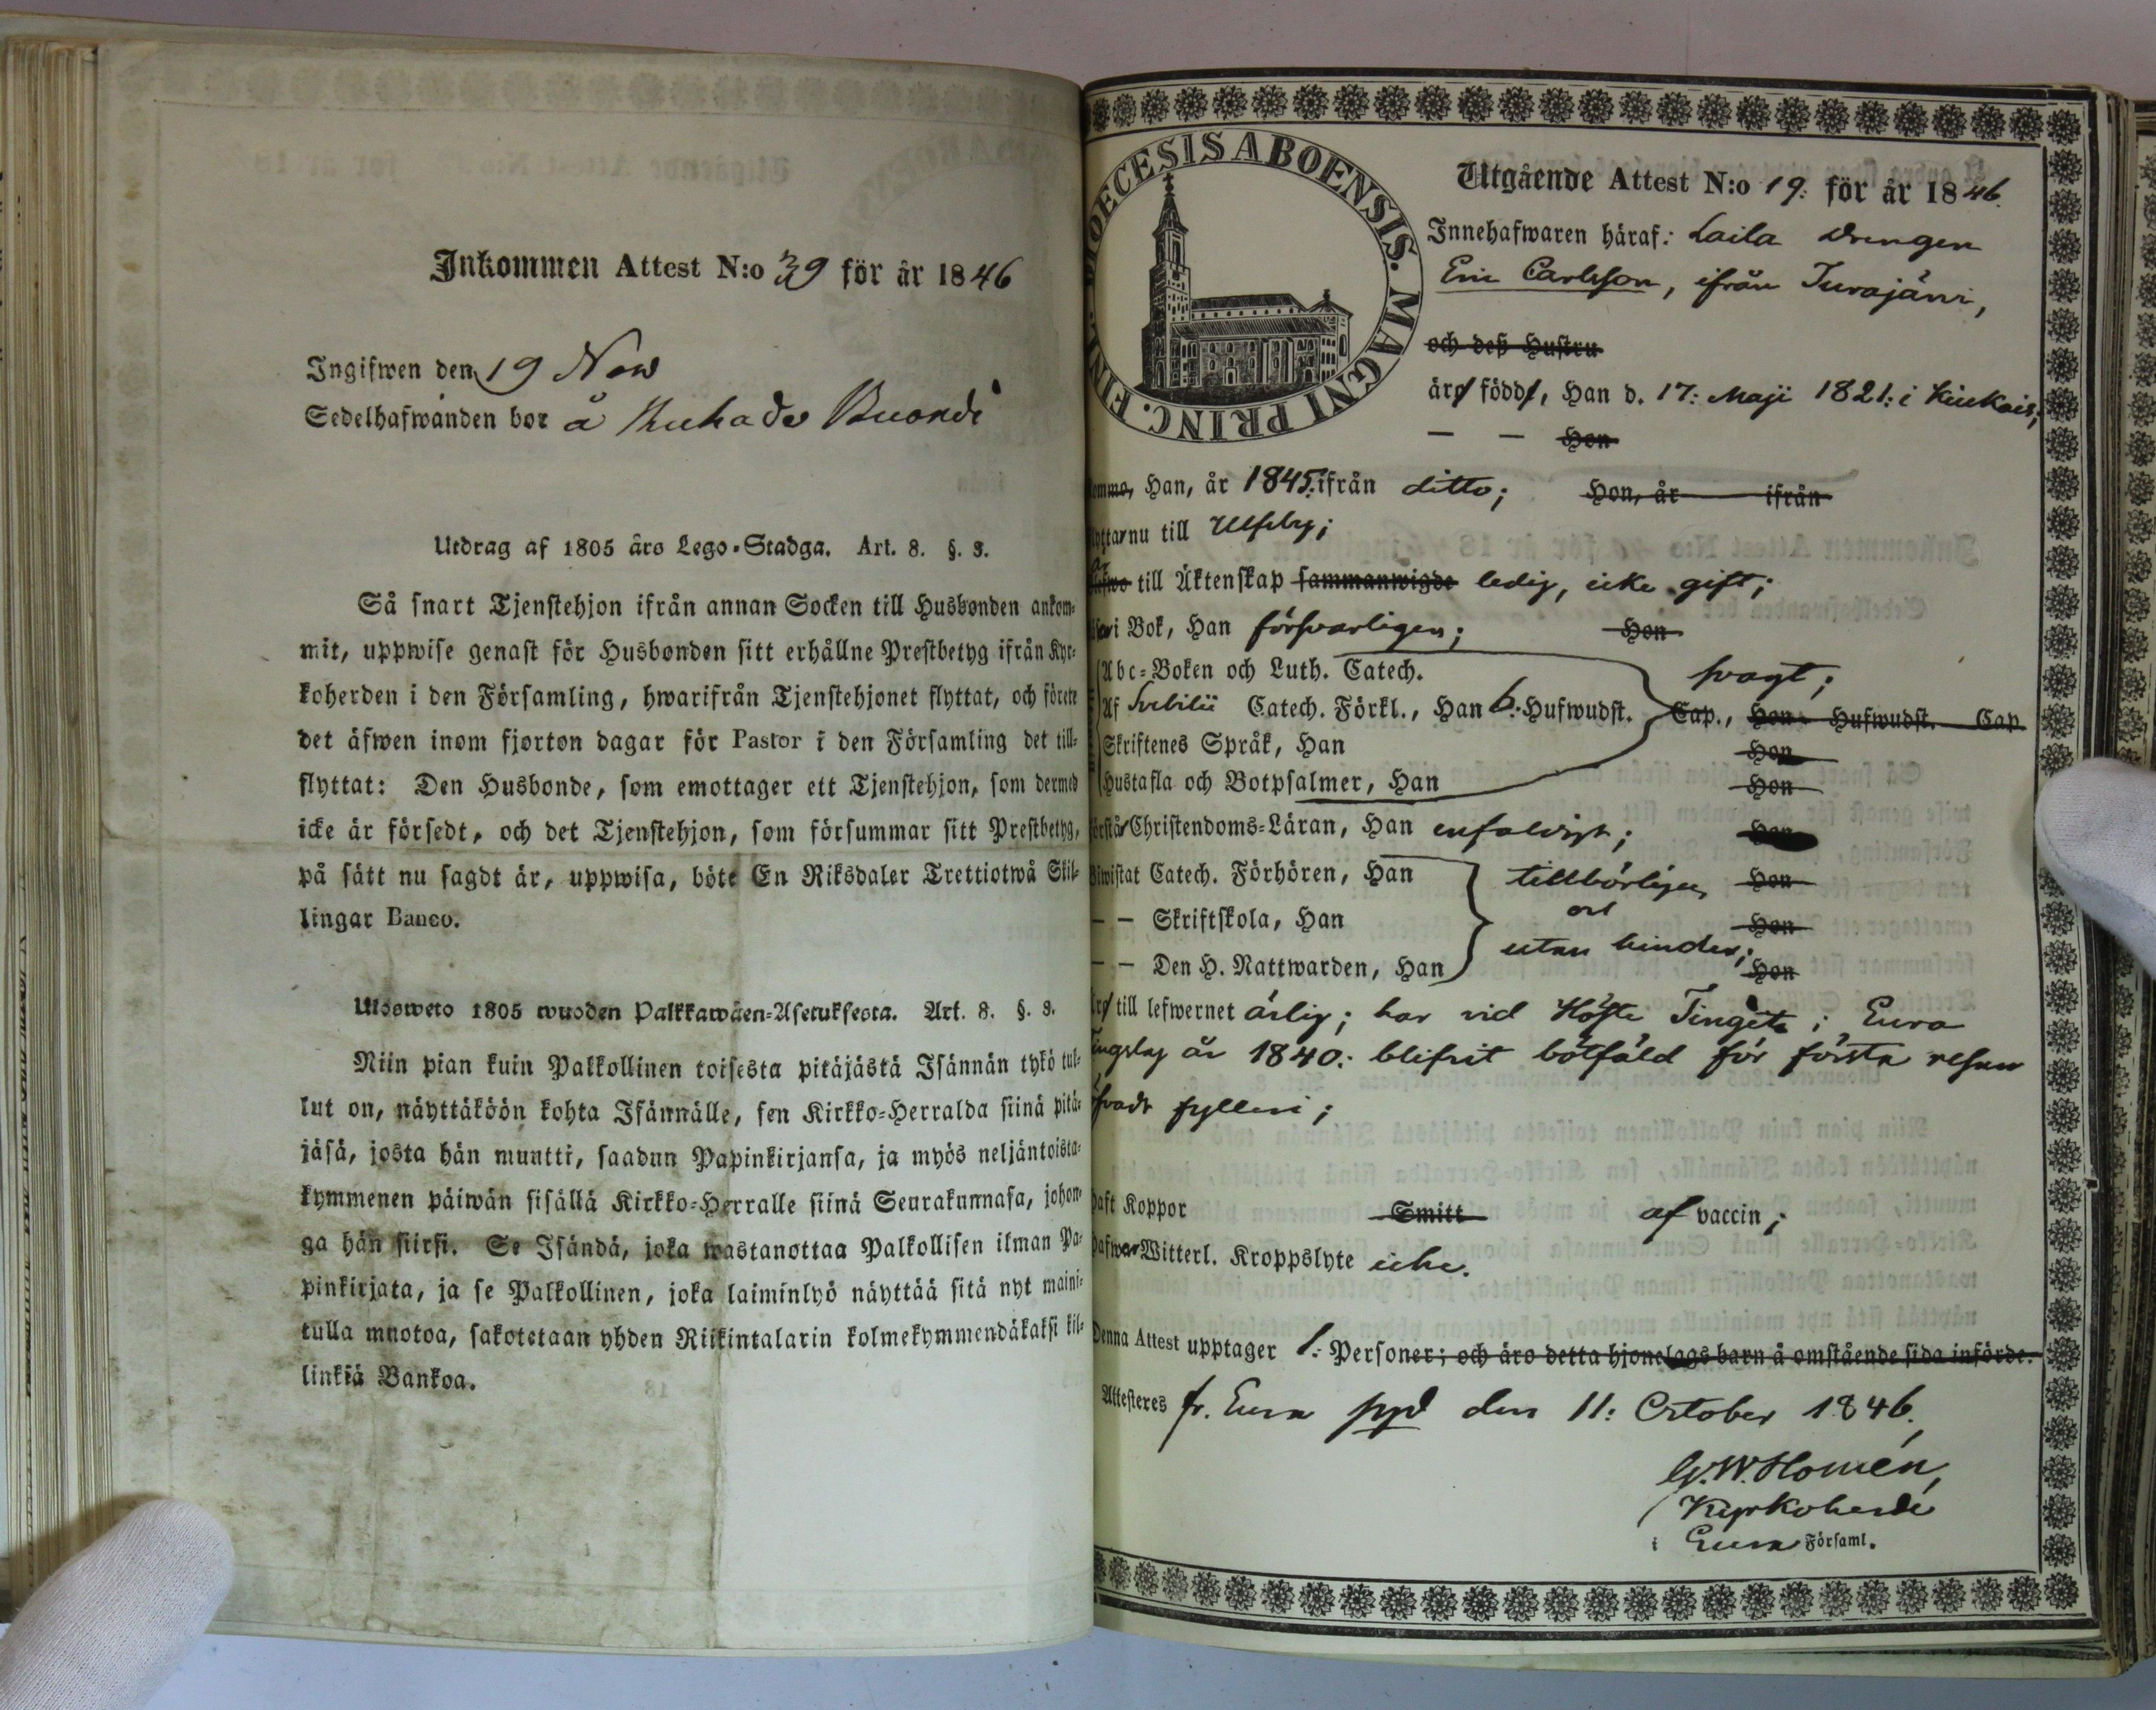 Inkommen Attest N:o 39 för år 1846
Ingifwen den 19 Nov
Sedelhafwanden bor å
Utdrag af 1805 års Lego-Stadga. Art. 8. §. 3.
Så snart Tjenstehjon ifrån annan Socken till Husbonden ankom-
mit, uppwise genast för Husbonden sitt erhållne Prestbetyg ifrån Kyr-
koherden i den Församling, hwarifrån Tjenstehjonet flyttat, och förete
det äfwen inom fjorton dagar för Pastor i den Församling det till-
flyttat: Den Husbonde, som emottager ett Tjenstehjon, som dermed
icke är försedt, och det Tjenstehjon, som försummar sitt Prestbetyg,
på sätt nu sagdt är, uppwisa, böte En Riksdaler Trettiotwå Skil-
lingar Banco.
Ulosweto 1805 wuoden Palkkawäen-Asetuksesta. Art. 8. §. 3.
Niin pian kuin Palkollinen toisesta pitäjästä Isännän tykö tul-
lut on, näyttäköön kohta Isännälle, sen Kirkko-Herralda siinä pitä-
jäsä, josta hän muutti, saadun Papinkirjansa, ja myös neljäntoista-
kymmenen päiwän sisällä Kirkko-Herralle siinä Seurakunnasa, johon-
ga hän siirsi. Se Isändä, joka wastanottaa Palkollisen ilman Pa-
pinkirjata, ja se Palkollinen, joka laiminlyö näyttää sitä nyt maini-
tulla muotoa, sakotetaan yhden Riikintalarin kolmekymmendäkaksi kil-
linkiä Bankoa.
DIOECESIS ABOENSIS. MAGNI PRINC. FINL.
Utgående Attest N:o 19. för år 1846.
Innehafwaren häraf: Laila Drengen
Eric Carlsson, ifrån Turajärvi,
och deß Hustru
äro födde, Han d. 17: Maji 1821: i Kiukais;
— — Hon
komma, Han, år 1845: ifrån ditto; Hon, år ifrån
flyttar nu till Ulfsby;
till Äktenskap sammanwigde ledig, icke gift;
i Bok, Han försvarligen; Hon
Abc-Boken och Luth. Catech. svagt;
Af Svebilii Catech. Förkl., Han 6. Hufwudst. Cap., Hon Hufwudst. Cap
Skriftenes Språk, Han Hon
Hustafla och Botpsalmer, Han Hon
förstår Christendoms-Läran, Han enfaldigt; Hon
Biwistat Catech. Förhören, Han tillbörligen Hon
— — Skriftskola, Han och Hon
— — Den H. Nattwarden, Han utan hinder; Hon
äro till lefwernet ärlig; har vid Höste Tinget i Eura
Tingslag år 1840: blifvit bötfäld för första resan
öfvadt fylleri;
haft Koppor Smitt af vaccin;
hafwa Witterl. Kroppslyte icke.
Denna Attest upptager 1. Personer; och äro detta hjonelags barn å omstående sida införde.
Attesteres fr. Eura ppd den 11: October 1846.
G.W. Homén,
Kyrkoherde
i Eura Församl.